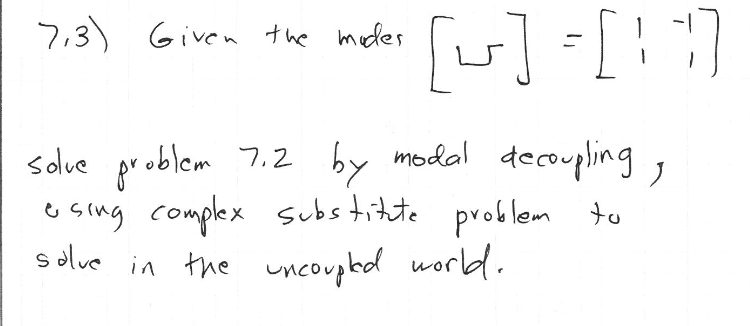 7.3) Given the modes [ U ] = [ 1 -1
1 1 ]
solve problem 7.2 by modal decoupling,
using complex substitute problem to
solve in the uncoupled world.